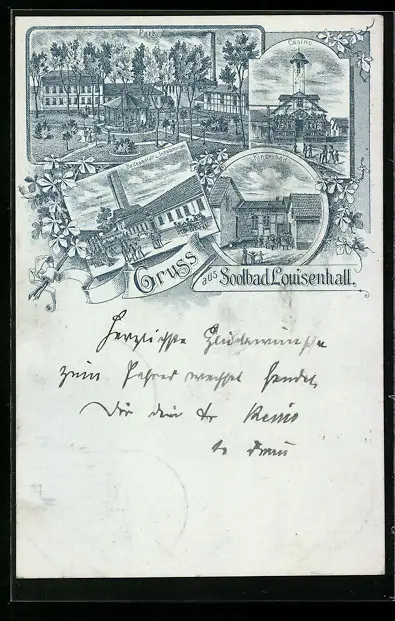 Park
Casino
Kinderbad
Gruss aus Soolbad Louisenhall.
Herzlichste Glückwünsche
zum Jahres wechsel sendet
Dir dein